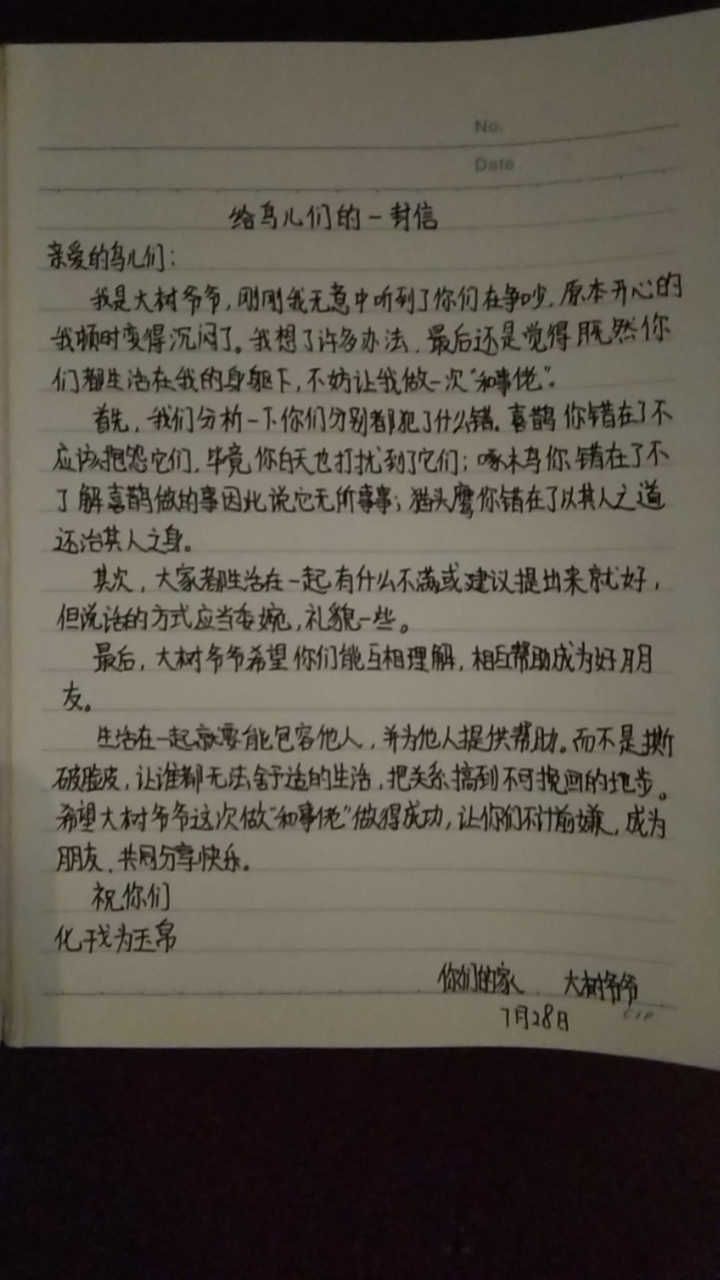 No.
Date
给鸟儿们的一封信
亲爱的鸟儿们:
我是大树爷爷,刚刚我无意中听到了你们在争吵,原本开心的
我顿时变得沉闷了。我想了许多办法,最后还是觉得既然你
们都生活在我的身躯下,不妨让我做一次“和事佬”。
首先,我们分析一下你们分别都犯了什么错。喜鹊你错在了不
应该抱怨它们,毕竟你白天也打扰到了它们;啄木鸟你错在了不
了解喜鹊做的事因此说它无所事事;猫头鹰你错在了以其人之道
还治其人之身。
其次,大家都生活在一起有什么不满或建议提出来就好,
但说话的方式应当委婉,礼貌一些。
最后,大树爷爷希望你们能互相理解,相互帮助成为好朋
友。
生活在一起就要能包容他人,并为他人提供帮助。而不是撕
破脸皮,让谁都无法舒适的生活,把关系搞到不可挽回的地步。
希望大树爷爷这次做“和事佬”做得成功,让你们不计前嫌,成为
朋友,共同分享快乐。
祝你们
化干戈为玉帛
你们的家 大树爷爷
7月28日